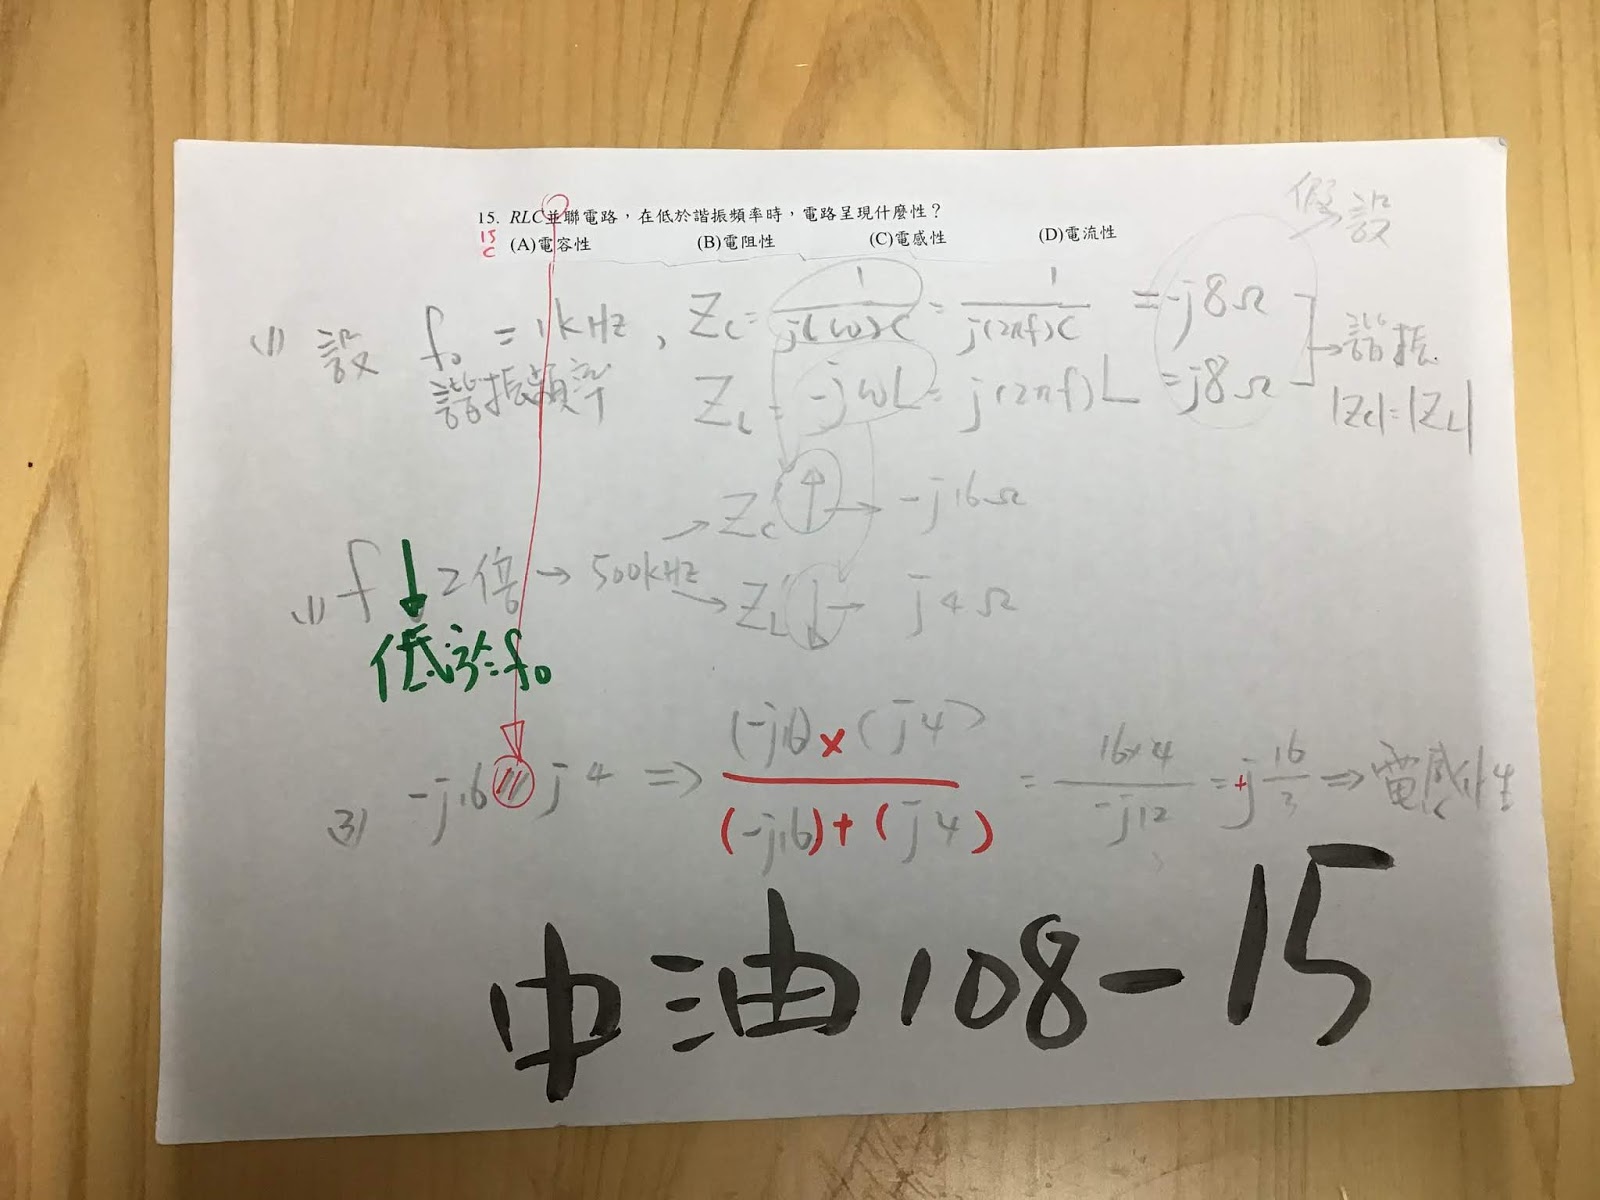 15. RLC並聯電路，在低於諧振頻率時，電路呈現什麼性？
15
C
(A)電容性 (B)電阻性 (C)電感性 (D)電流性
假設
(1) 設 f₀ = 1kHz , Zc = 1/j(ω)C = 1/j(2πf)C = -j8Ω
諧振頻率 ZL = -jωL = j(2πf)L = j8Ω
諧振
|Zc|=|ZL|
Zc ↑ → -j16Ω
(1) f ↓ 2倍 → 500kHz
ZL ↓ → j4Ω
低於f₀
(3) -j16 // j4 ⇒ (-j16)×(j4) / (-j16)+(j4) = 16×4 / -j12 = +j 16/3 ⇒ 電感性
中油108-15